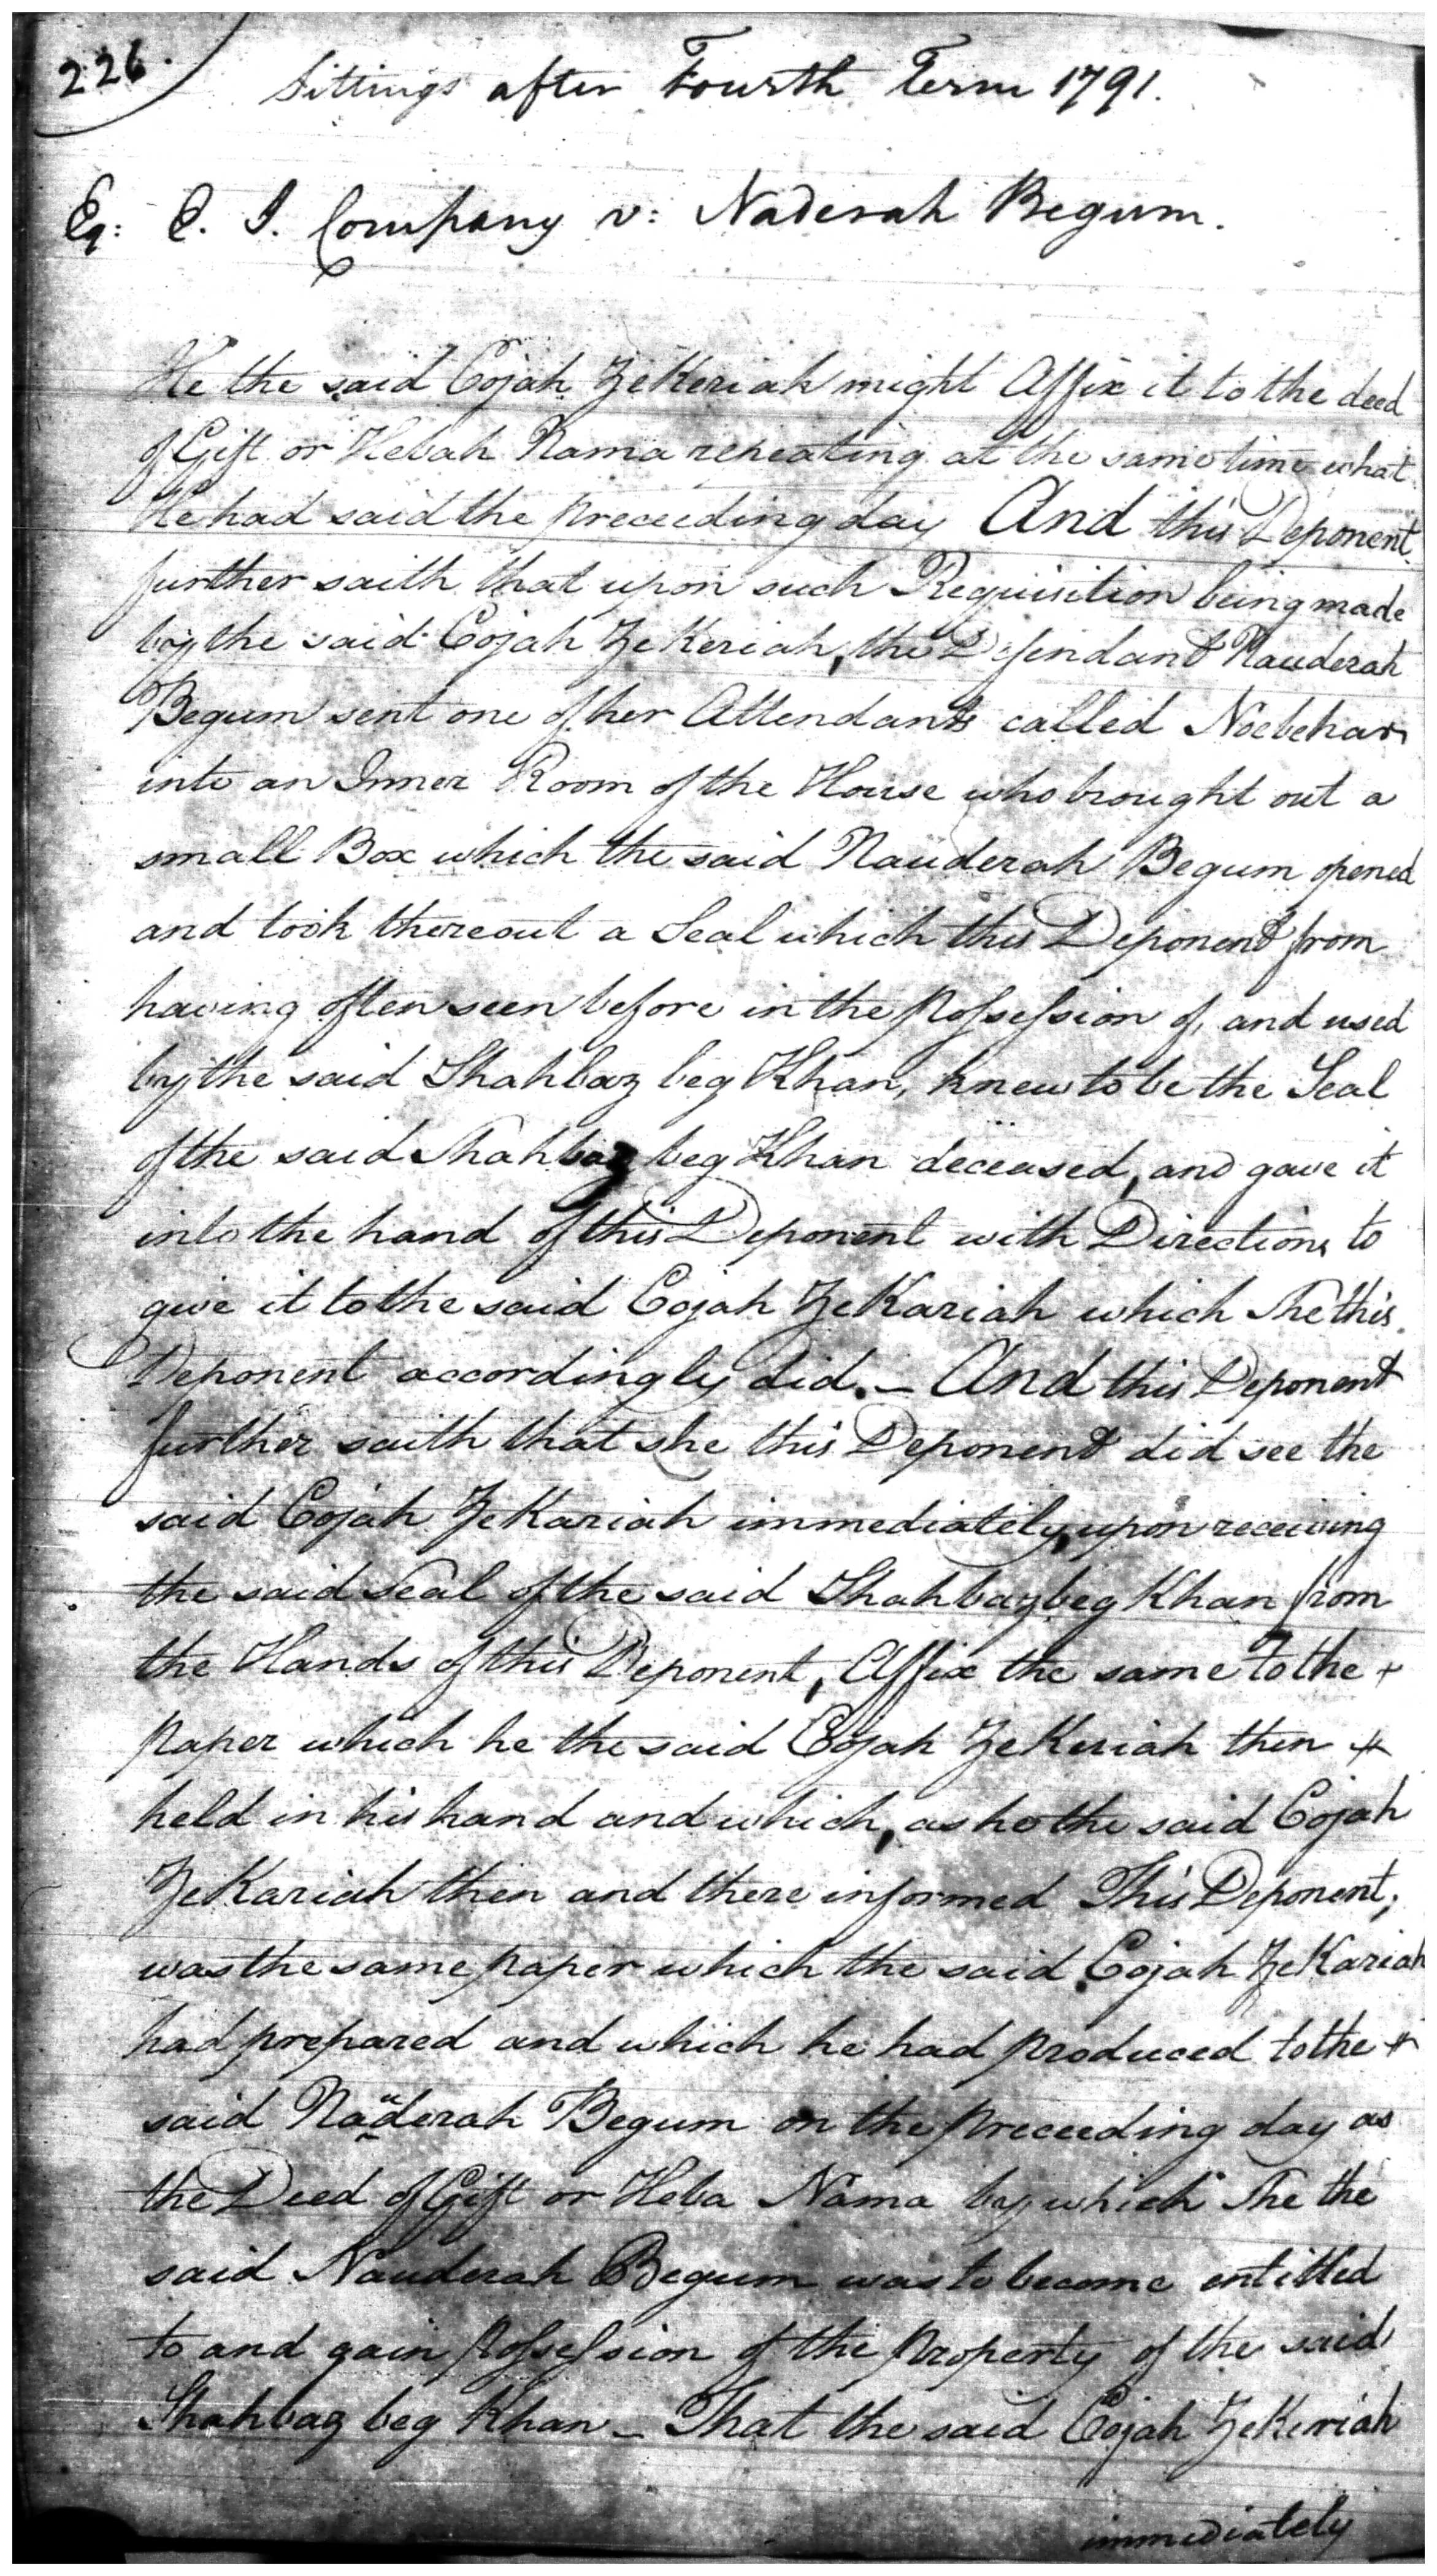 226.
Sittings after Fourth Term 1791.
Eq: E. I. Company v: Naderah Begum.
He the said Cojah Zekeriah might Affix it to the deed
of Gift or Hebah Nama repeating at the same time what
He had said the preceeding day And this Deponent
further saith that upon such Requisition being made
by the said Cojah Zekeriah, the Defendant Nauderah
Begum sent one of her Attendants called Noebehar
into an Inner Room of the House who brought out a
small Box which the said Nauderah Begum opened
and took thereout a Seal which this Deponent from
having often seen before in the Possession of, and used
by the said Shahbaz beg Khan, knew to be the Seal
of the said Shahbaz beg Khan deceased, and gave it
into the hand of this Deponent with Directions to
give it to the said Cojah ZeKariah which She this
Deponent accordingly did. – And this Deponent
further saith that she this Deponent did see the
said Cojah ZeKariah immediately, upon receiving
the said Seal of the said Shahbaz beg Khan from
the Hands of this Deponent, Affix the same to the +
paper which he the said Cojah ZeKeriah then +
held in his hand and which, as he the said Cojah
ZeKariah then and there informed This Deponent,
was the same paper which the said Cojah ZeKariah
had prepared and which he had produced to the +
said Nauderah Begum on the preceeding day as
the Deed of Gift or Heba Nama by which She the
said Nauderah Begum was to become entitled
to and gain Possession of the Property of the said
Shahbaz beg Khan – That the said Cojah ZeKeriah
immediately